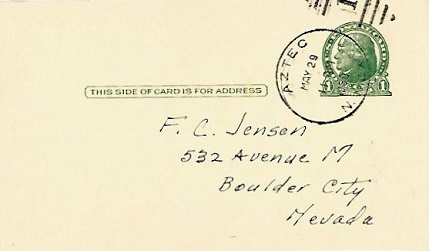 AZTEC
MAY 29
N.
1 1
THIS SIDE OF CARD IS FOR ADDRESS
F. C. Jensen
532 Avenue M
Boulder City
Nevada